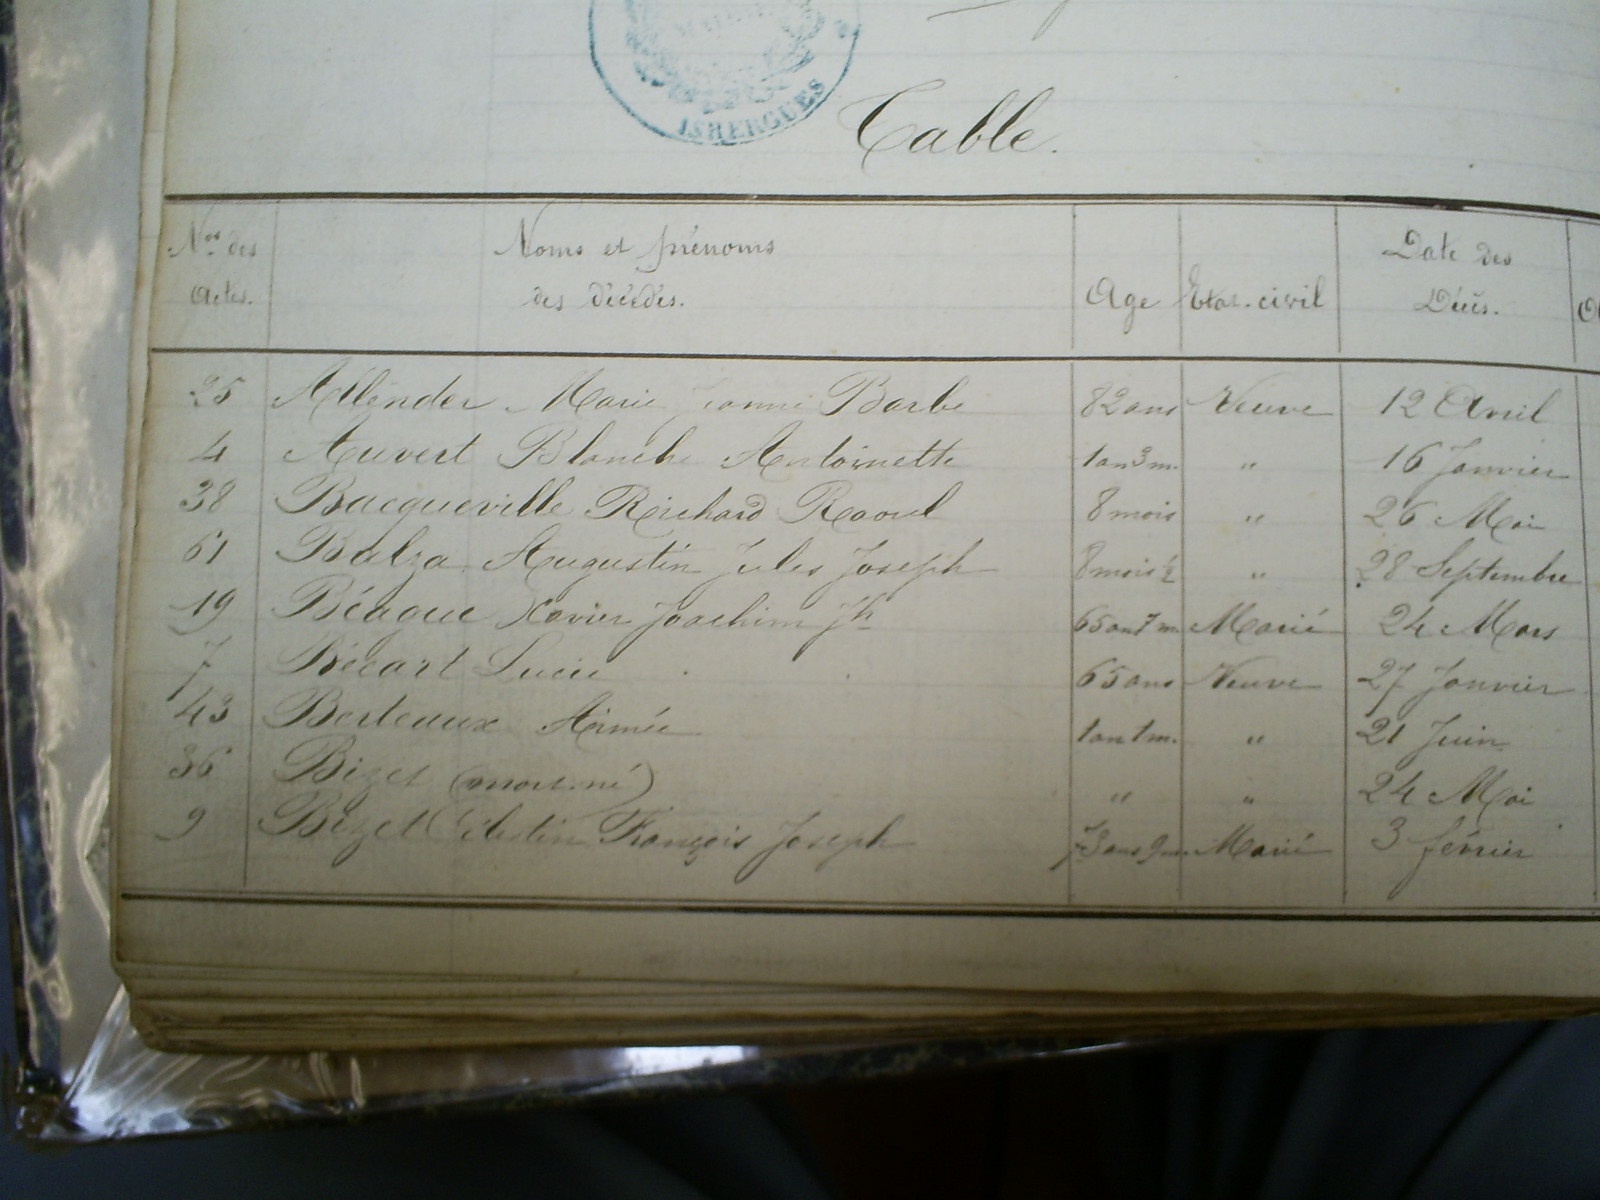 ISBERGUES
Table.
Nos des Actes.
Noms et prénoms des décédés.
Age
Etat-civil
Date des Décès.
25 Allender Marie Jeanne Barbe 82 ans Veuve 12 Avril
4 Auvert Blanche Antoinette 1 an 3 m. " 16 Janvier
38 Bacqueville Richard Raoul 8 mois " 26 Mai
61 Balza Augustin Jules Joseph 8 mois ½ " 28 Septembre
19 Béague Xavier Joachim Jh 65 ans 7 m. Marié 24 Mars
7 Bécart Lucie 65 ans Veuve 27 Janvier
43 Berteaux Aimée 1 an 1 m. " 21 Juin
36 Bizet (mort-né) " " 24 Mai
9 Bizet Célestin François Joseph 73 ans 9 m. Marié 3 février